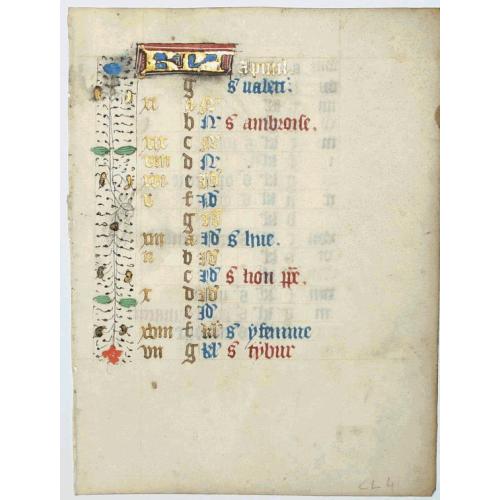 KL Apuril
g s ualeri.
xi A N
b N s ambroise.
xix c N
viii d N
xvi e N
v f Id
g Id
xiii a Id s hue.
ii b Id
c Id s lion ppe.
x d Id
e Id
xviii f kl s yfemme
vii g kl s tybur
CL 4